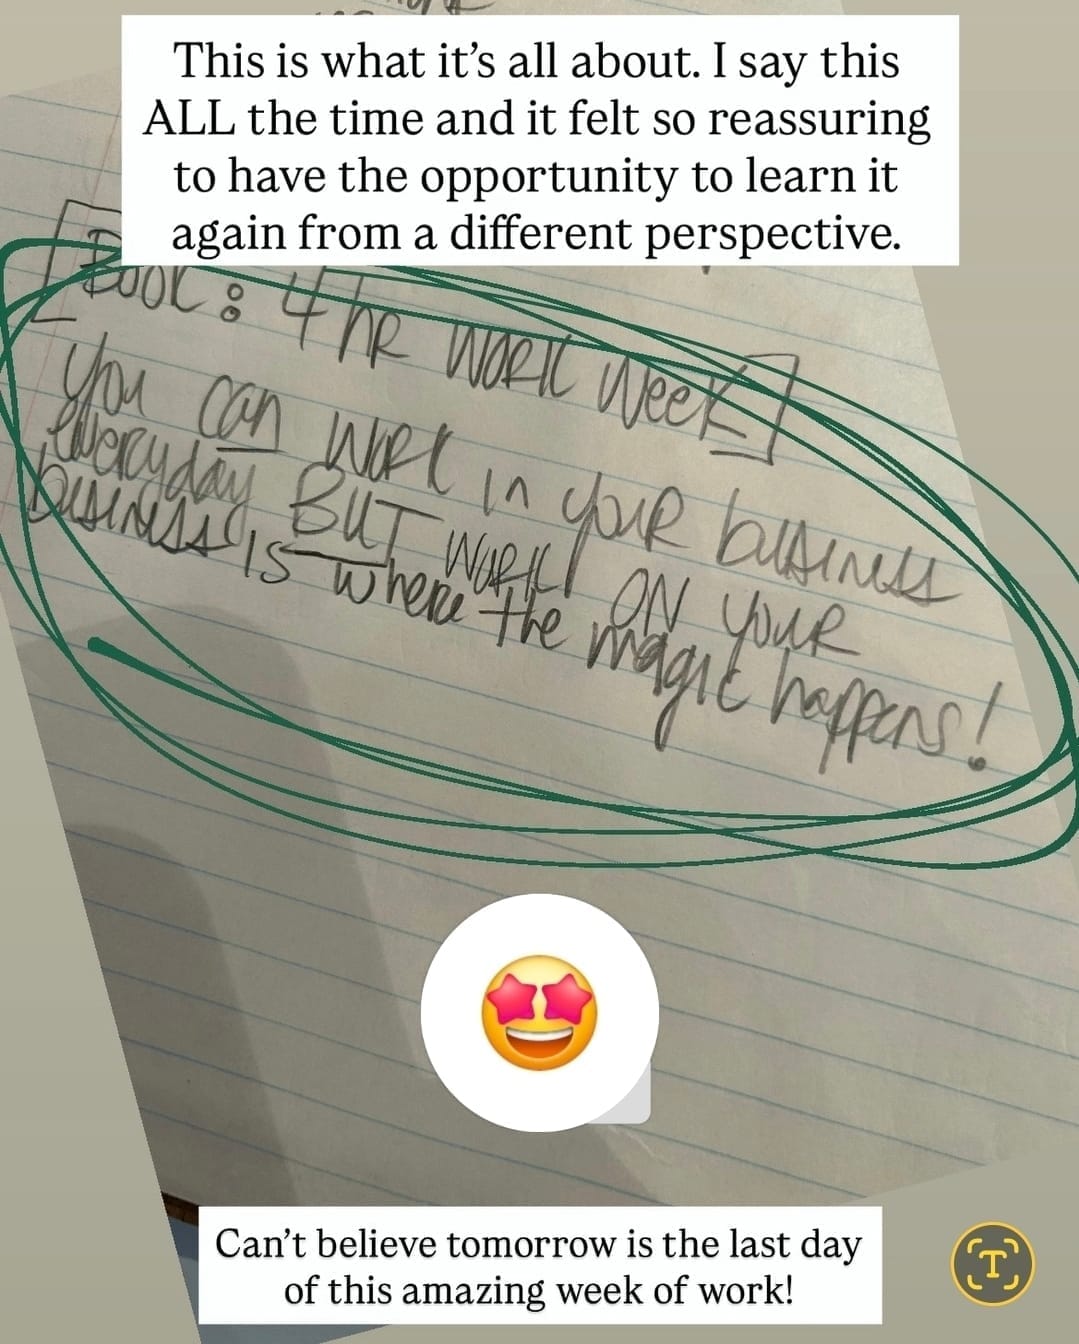 This is what it's all about. I say this
ALL the time and it felt so reassuring
to have the opportunity to learn it
again from a different perspective.
[Book: 4 hr work week]
You can work in your business
everyday BUT work ON your
business is where the magic happens!
Can't believe tomorrow is the last day
of this amazing week of work!